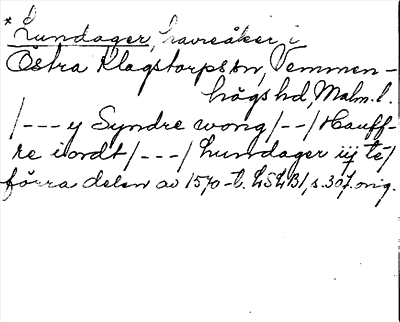 * Lundager, havreåker, i
Östra Klagstorps sn, Vemmen-
högs hd, Malm. l.
/--- y Syndre wong /--/ Hauff-
re iordt /---/ Lundager iij te/
förra delen av 1570-t. LSLB1, s. 307. orig.